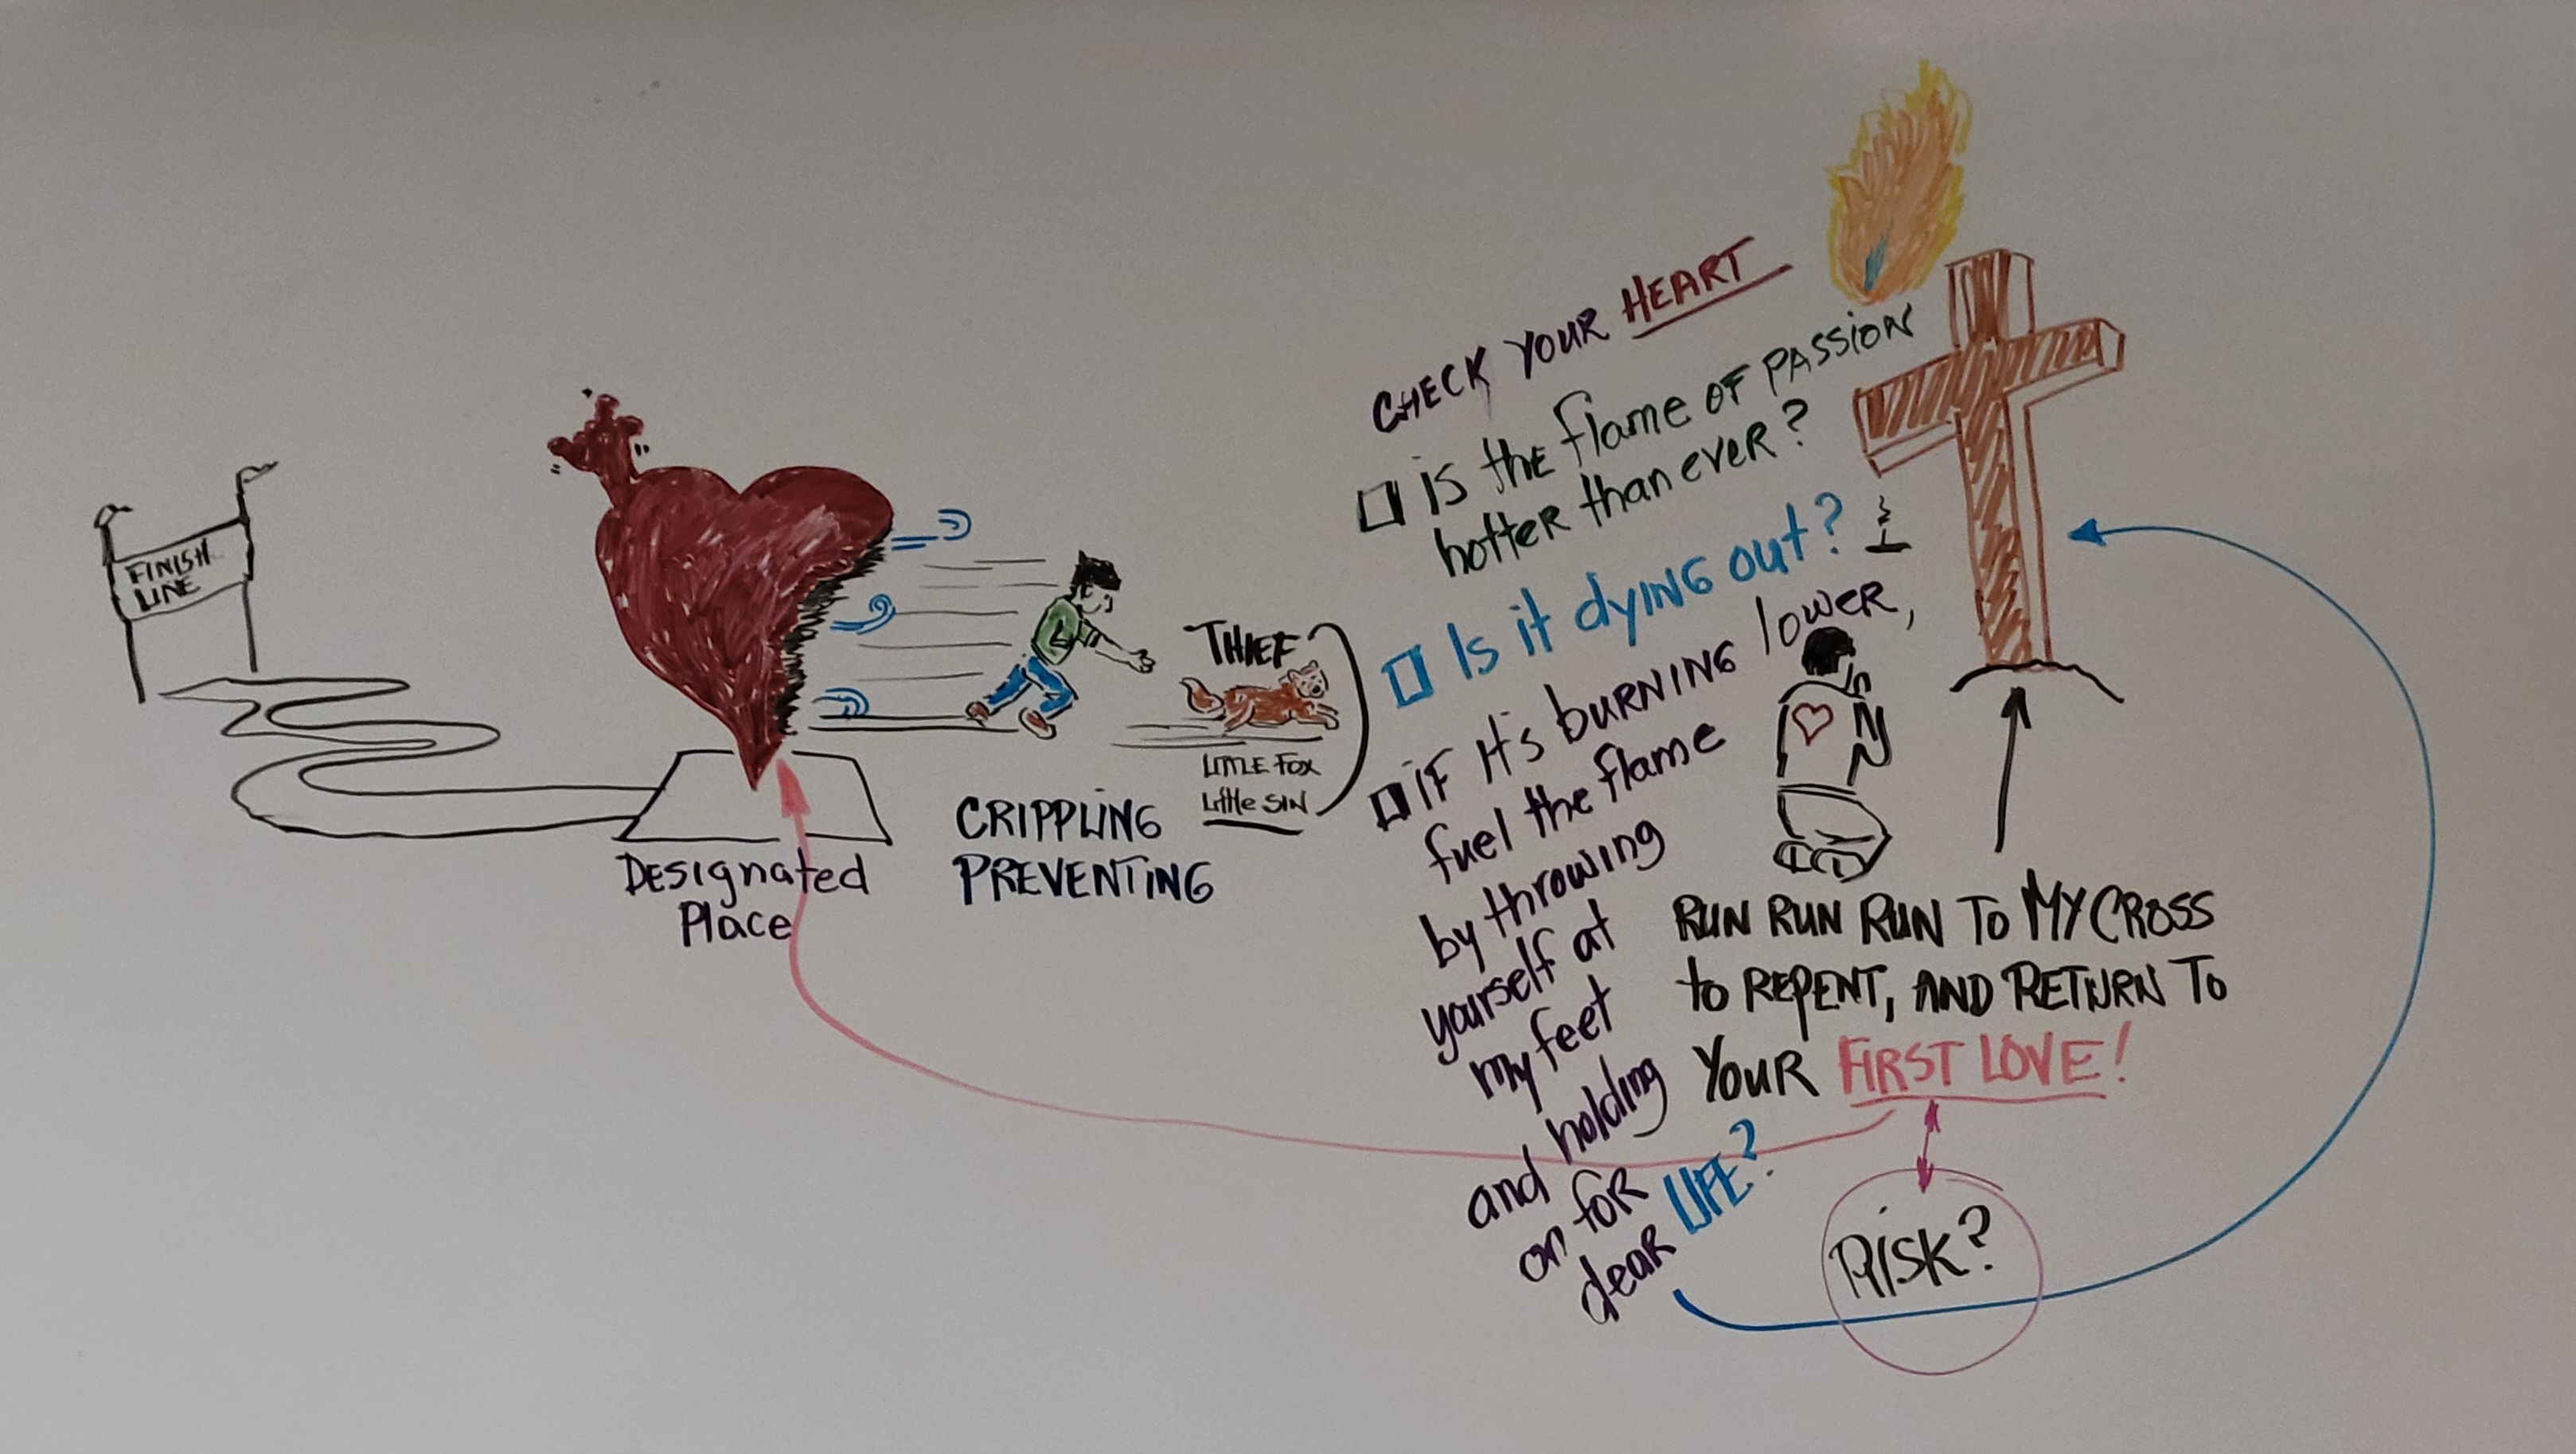 FINISH
LINE
DESignated
Place
CRIPPLING
PREVENTING
THIEF
LITTLE FOX
Little SIN
CHECK YOUR HEART
is thE flame OF PASSiON
hotteR than eveR?
Is it dyiNG out?
iF It's buRNiNG loweR,
fuel the flame
by throwing
yourself at
my feet
and holding
on foR
deaR LIFE?
RUN RUN RUN TO MY CROSS
to REPENT, AND RETURN TO
YOUR FIRST LOVE!
RiSK?